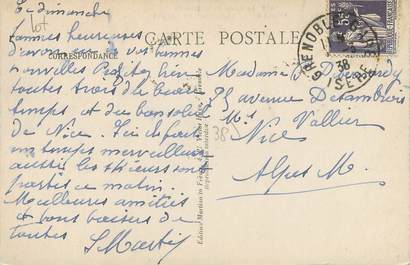 Ce dimanche
lot
Sommes heureuses
d'avoir eu vos bonnes
nouvelles Profitez bien
toutes trois du beau
temps et du bon soleil
de Nice. Ici il fait
un temps merveilleux
aussi les skieurs sont
partis ce matin.
Meilleures amitiés
et bons baisers de
toutes
S Martin
CARTE POSTALE
CORRESPONDANCE
Madame
25 avenue Désambrois
Vallier
Nice
Alpes M.
38
GRENOBLE
ISERE
38